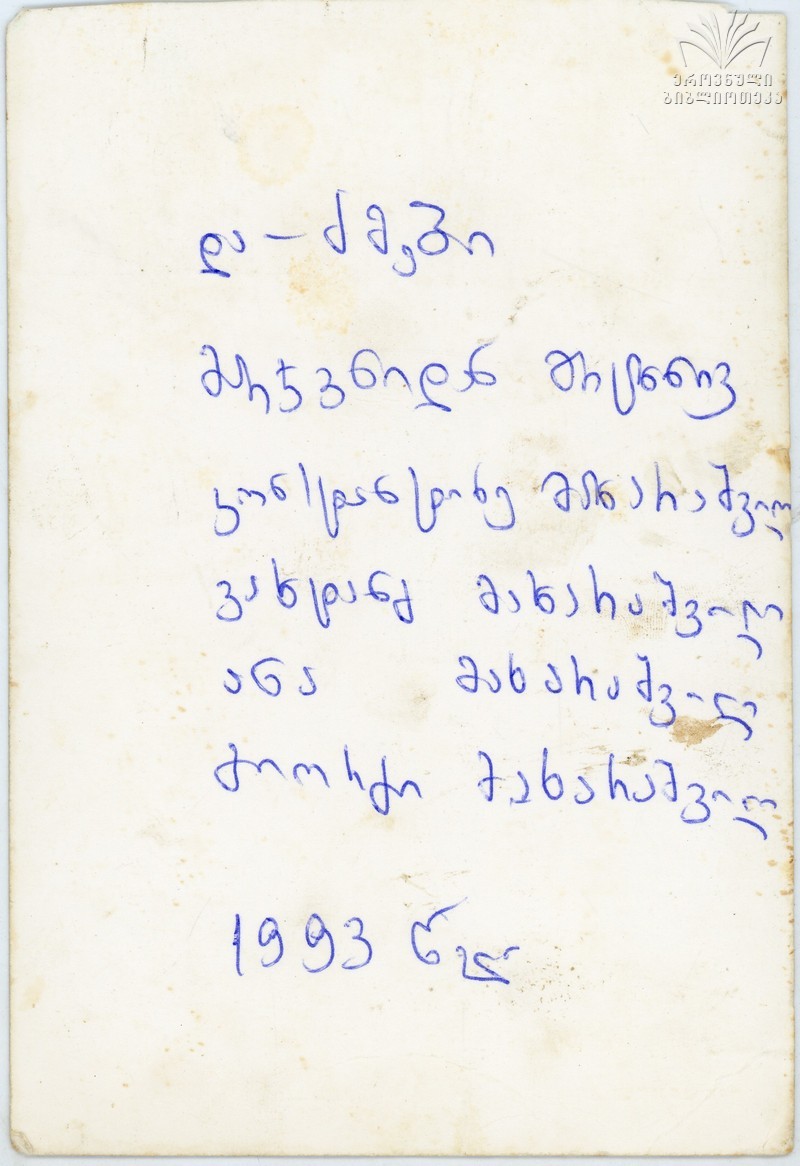 ეროვნული
ბიბლიოთეკა
და - ძმები
მარჯვნიდან მარცხნივ
კონსტანტინე მახარაშვილი
ვახტანგ მახარაშვილი
ანა მახარაშვილი
გიორგი მახარაშვილი
1993 წელი